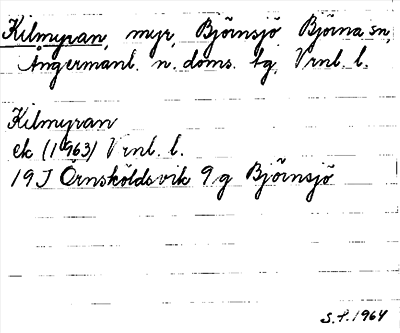 Kilmyran, myr, Björnsjö Björna sn,
Ångermanl. n. doms. tg, Vrnl. l.
Kilmyran
ek (1963) Vrnl. l.
19J Örnsköldsvik 9g Björnsjö
S.f. 1964